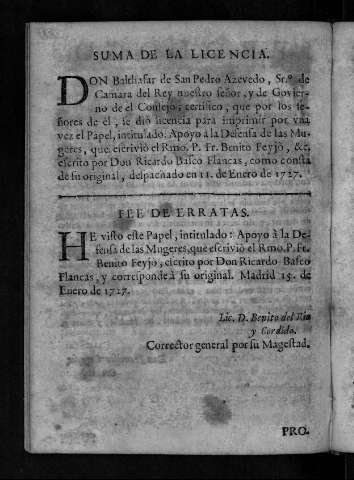 SUMA DE LA LICENCIA.
DON Balthasar de San Pedro Azevedo, Sr.º de
Camara del Rey nuestro señor, y de Govier-
no de el Consejo; certifico, que por los se-
ñores de él, se diò licencia para imprimir por vna
vez el Papel, intitulado: Apoyo à la Defensa de las Mu-
geres, que escriviò el Rmo. P. Fr. Benito Feyjò, &c.
escrito por Don Ricardo Basco Flancas, como consta
de su original, despachado en 11. de Enero de 1727.
FEE DE ERRATAS.
HE visto este Papel, intitulado: Apoyo à la De-
fensa de las Mugeres, que escriviò el Rmo. P. Fr.
Benito Feyjo, escrito por Don Ricardo Basco
Flancas, y corresponde à su original. Madrid 15. de
Enero de 1727.
Lic. D. Benito del Rio
y Cordido.
Corrector general por su Magestad.
PRO.